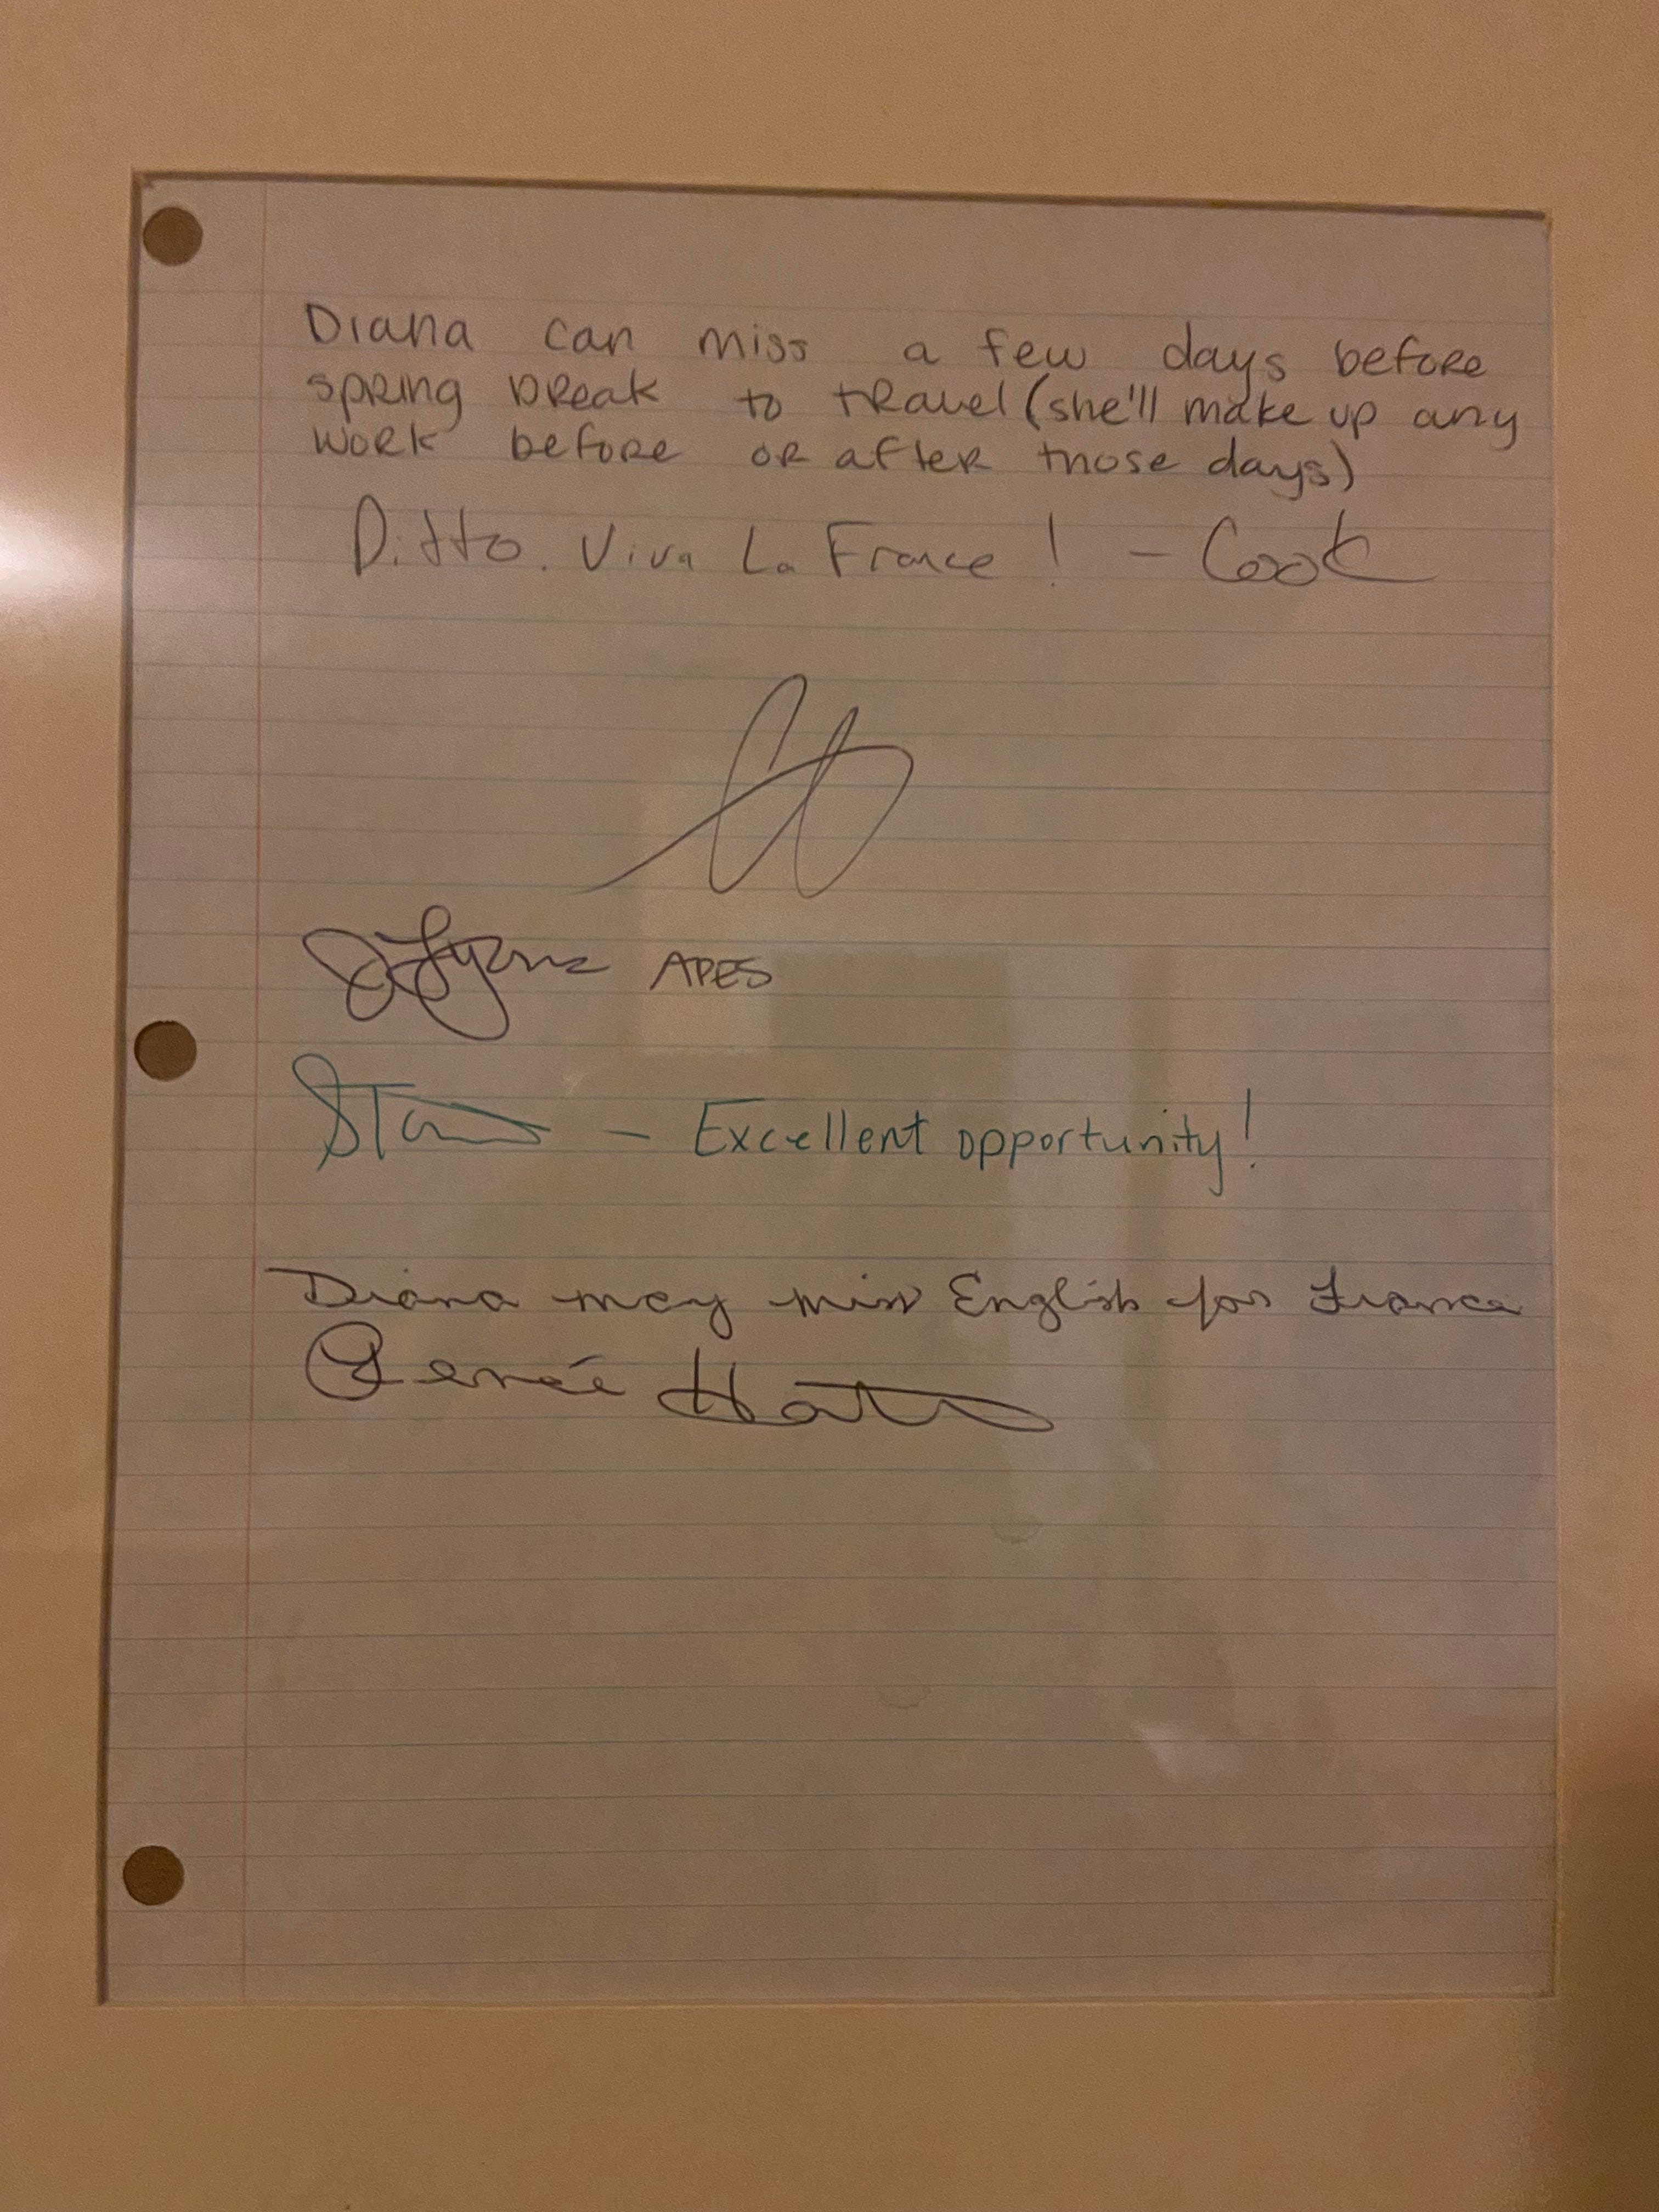 Diana can miss a few days before
spring break to travel (she'll make up any
work before or after those days)
Ditto. Viva La France! - Cook
APES
- Excellent opportunity!
Diana may miss English for France
Renée